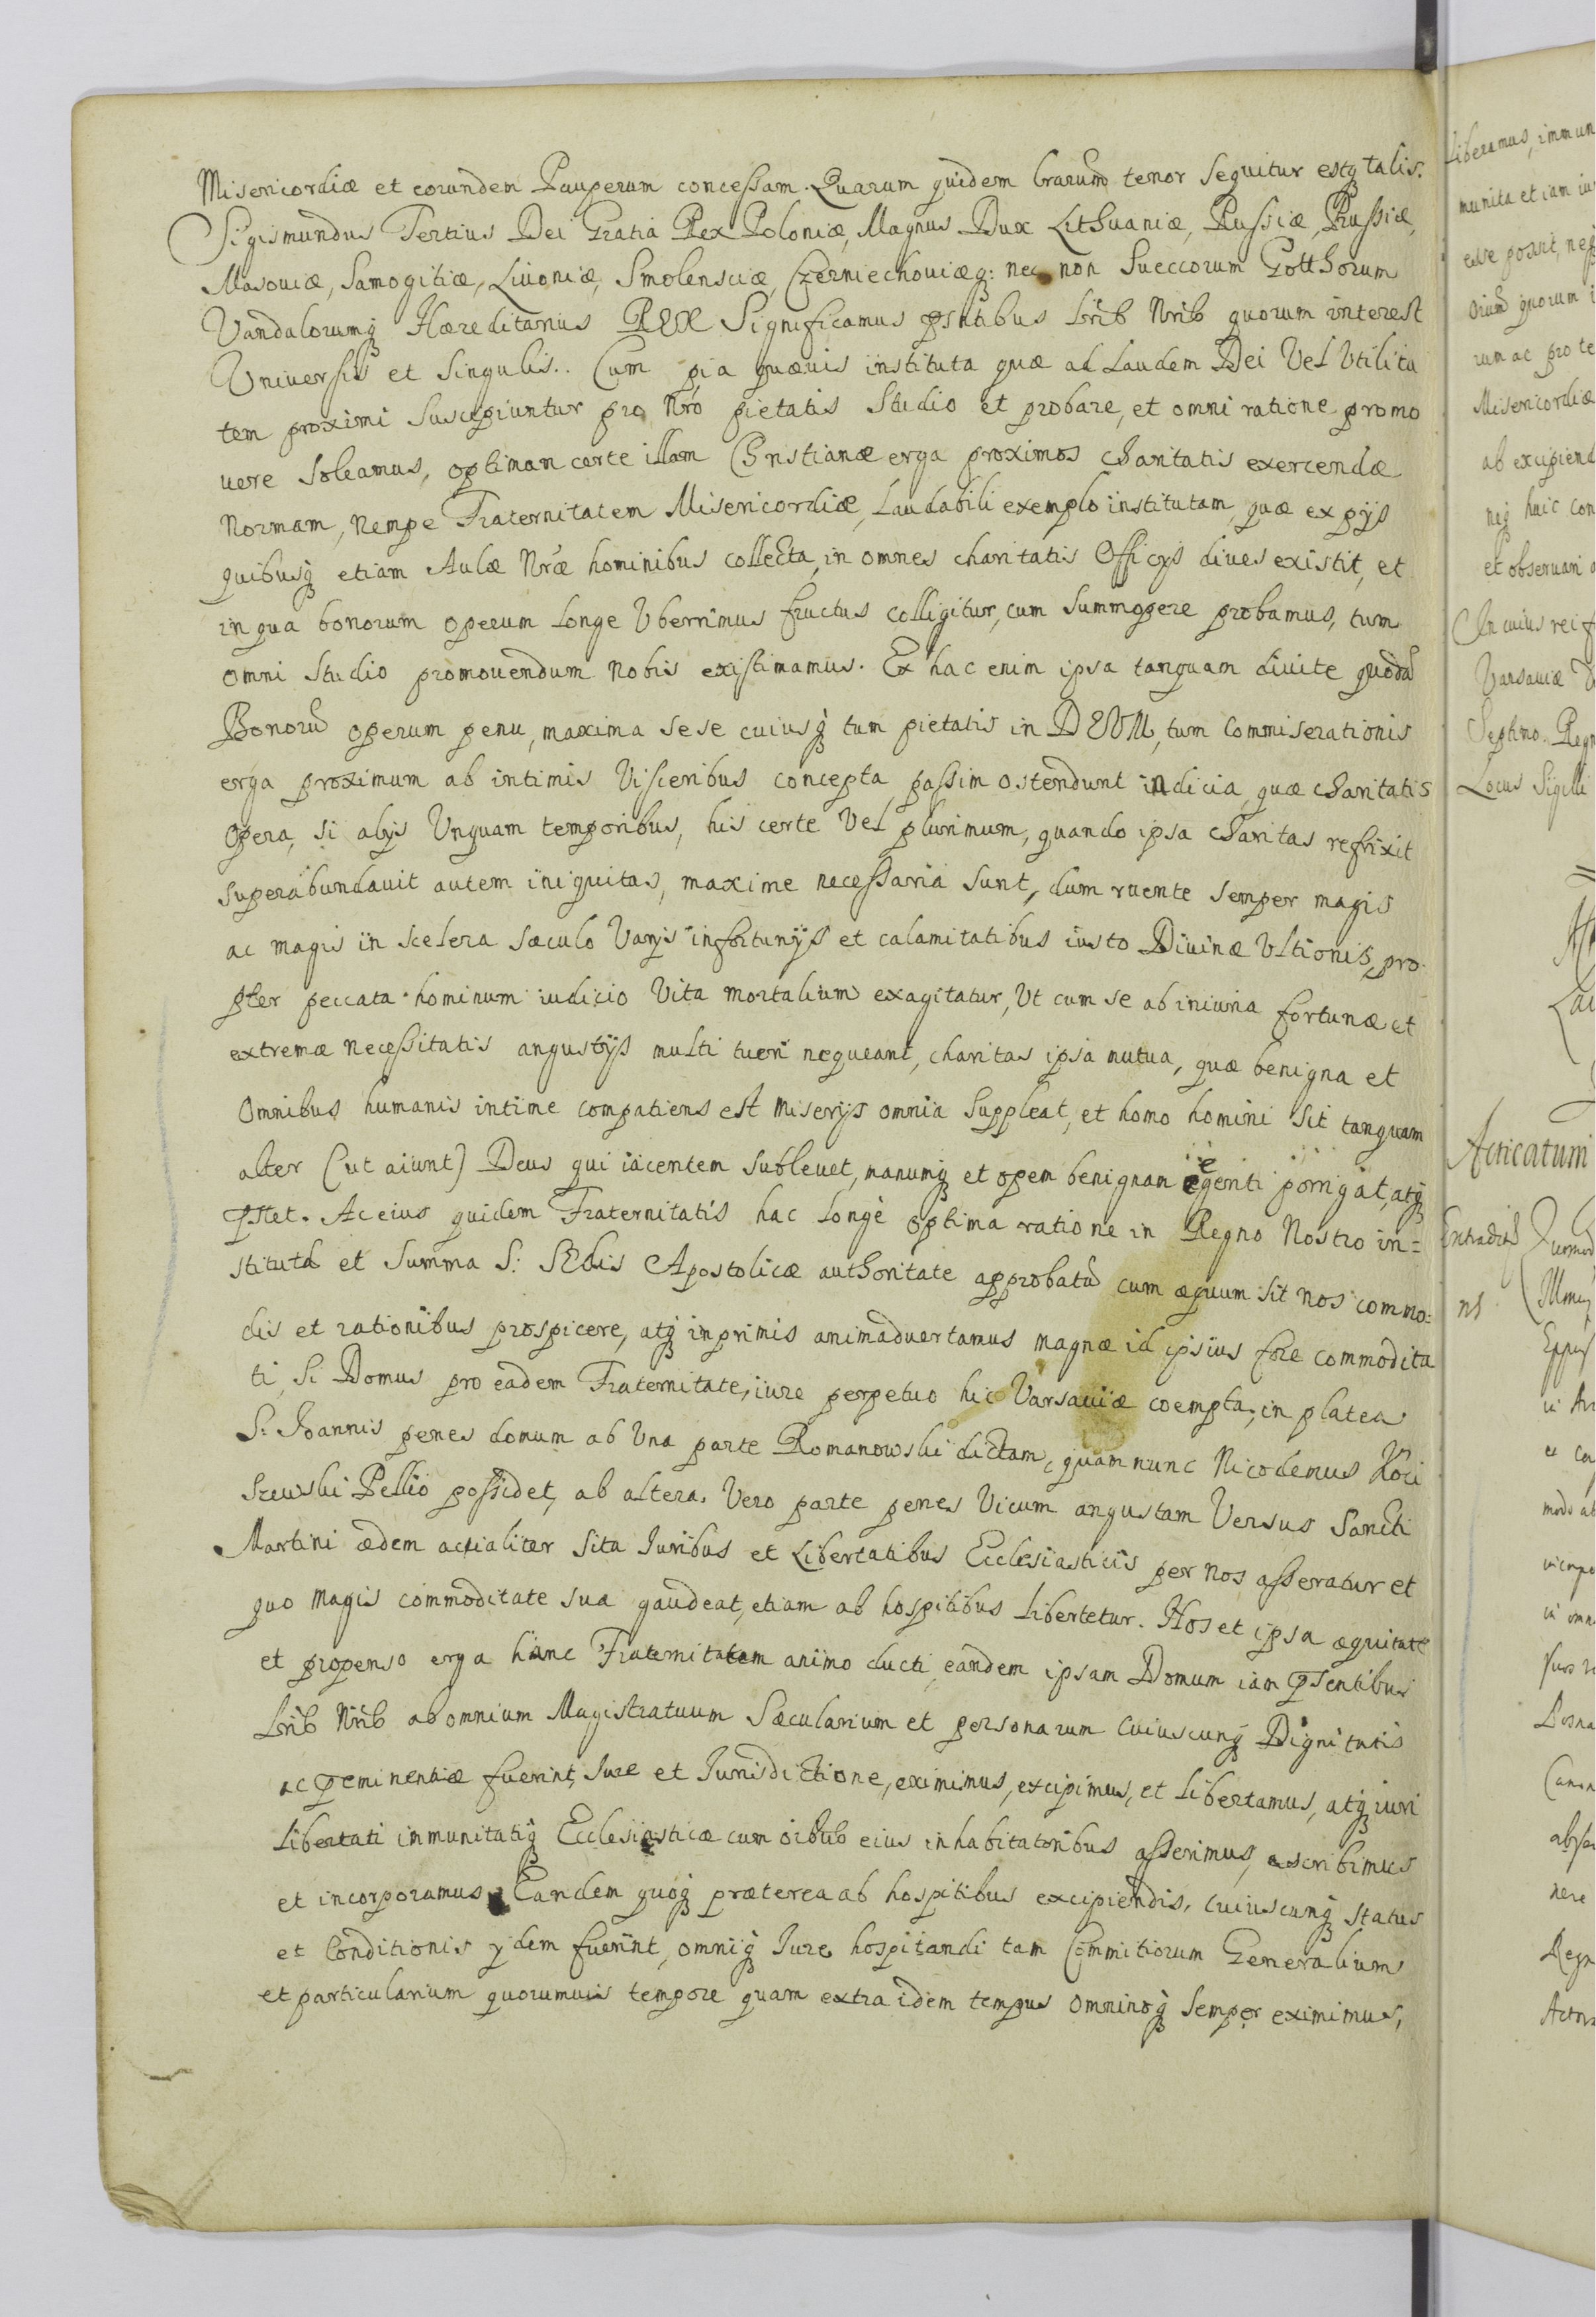 Misericordiæ et eorundem Pauperum concessam. Quarum quidem lrarum tenor sequitur estq talis.
Sigismundus Tertius Dei Gratia Rex Poloniæ, Magnus Dux Lithuaniæ, Russiæ, Prussiæ,
Masouiæ, Samogitiæ, Liuoniæ, Smolensciæ, Czerniechouiæq: nec non Sueccorum Gotthorum
Vandalorumq Hæreditarius REX Significamus psntibus lrib Nrib quorum interest
Uniuersis et singulis.. Cum pia quæuis instituta quæ ad Laudem Dei Vel Utilita
tem proximi suscipiuntur pro Nro pietatis studio et probare, et omni ratione promo
uere soleamus, optiman certe illam Christianæ erga proximos charitatis exercendæ
Normam, nempe Fraternitatem Misericordiæ, Laudabili exemplo institutam, quæ ex pijs
quibusq etiam Aulæ Nræ hominibus collecta, in omnes charitatis Officijs diues existit, et
in qua bonorum operum longe Uberrimus fructus colligitur, cum summopere probamus, tum
omni studio promouendum nobis existimamus. Ex hac enim ipsa tanquam diuite quodã
Bonorũ operum penu, maxima sese cuiusq tum pietatis in DEUM, tum commiserationis
erga proximum ab intimis Visceribus concepta, passim ostendunt indicia, quæ charitatis
opera, si alijs Unquam temporibus, his certe Vel plurimum, quando ipsa charitas refrixit
superabundauit autem iniquitas, maxime necessaria sunt, dum ruente semper magis
ac magis in scelera sæculo Varijs infortunijs et calamitatibus iusto Diuinæ Ultionis, pro
pter peccata hominum iudicio Vita mortalium exagitatur, Ut cum se ab iniuria fortunæ et
extremæ necessitatis angustijs multi tueri nequeant, charitas ipsa mutua, quæ benigna et
omnibus humanis intime compatiens est miserijs omnia suppleat, et homo homini sit tanquam
alter (ut aiunt) Deus qui iacentem subleuet, manumq et opem benignan egenti porrigat, atq
pstet. Ac eius quidem Fraternitatis hac longè optima ratione in Regno Nostro in=
stitutã et summa S: SEdis Apostolicæ authoritate approbatã cum æquum sit nos commo=
dis et rationibus prospicere, atq inprimis animaduertamus magnæ id ipsius fore commodita
ti, Si Domus pro eadem Fraternitate, iure perpetuo hic Varsauiæ coempta, in platea
S: Joannis penes domum ab Una parte Romanowski dictam, quam nunc Nicodemus Koci
szewski Pellio possidet, ab altera. Vero parte penes Vicum angustam Versus Sancti
Martini ædem acialiter sita Juribus et Libertatibus Ecclesiasticis per nos asseratur et
quo magis commoditate sua gaudeat, etiam ab hospitibus libertetur. Nos et ipsa æquitate
et propenso erga hanc Fraternitatem animo ducti, eandem ipsam Domum iam psentibus
lrib Nrib ab omnium Magistratuum Sæcularium et personarum cuiuscunq Dignitatis
ac peminentiæ fuerint, Jure et Jurisdictione, eximimus, excipimus, et libertamus, atq iuri
Libertati immunitatiq Ecclesiasticæ cum oibub eius inhabitatoribus asserimus, ascribimus
et incorporamus. Eandem quoq præterea ab hospitibus excipiendis, cuiuscunq status
et Conditionis ydem fuerint, omniq Jure hospitandi tam Commitiorum Generalium
et particularium quorumuis tempore quam extra idem tempus omninoq semper eximimus,
Liberamus, immun
munita et iam iur
esse possit, neq
oium quorum i
rum ac pro te
Misericordiæ
ab excipiend
neq huic con
et obseruari
In cuius rei f
Varsauiæ
Septimo. Regn
Locus Sigilli
Acticatum